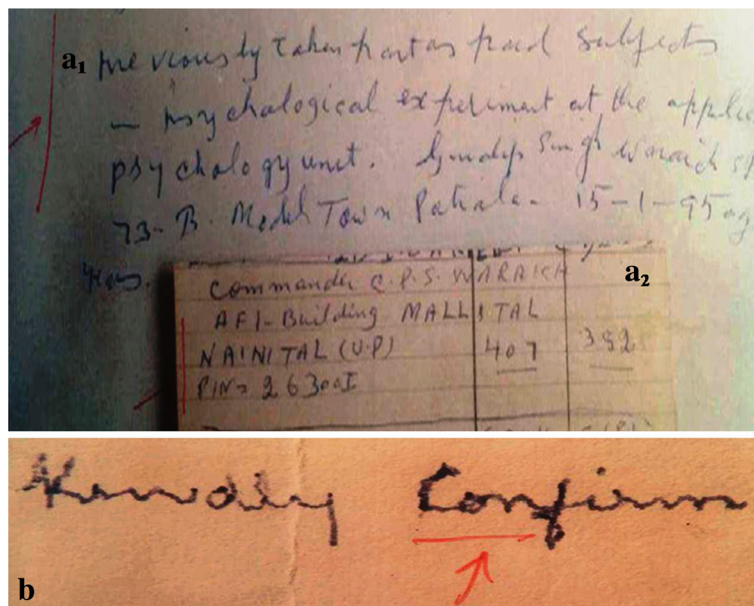 a1
previously taken part as paid subjects
psychological experiment at the applie
psychology unit. Singh Waraich
73-B. Model Town Patiala- 15-1-95
Commander C.P.S. WARAICH
a2
AFI-Building MALLITAL
NAINITAL (U.P) 407 392
PIN= 263001
Kewdly Confirm
b